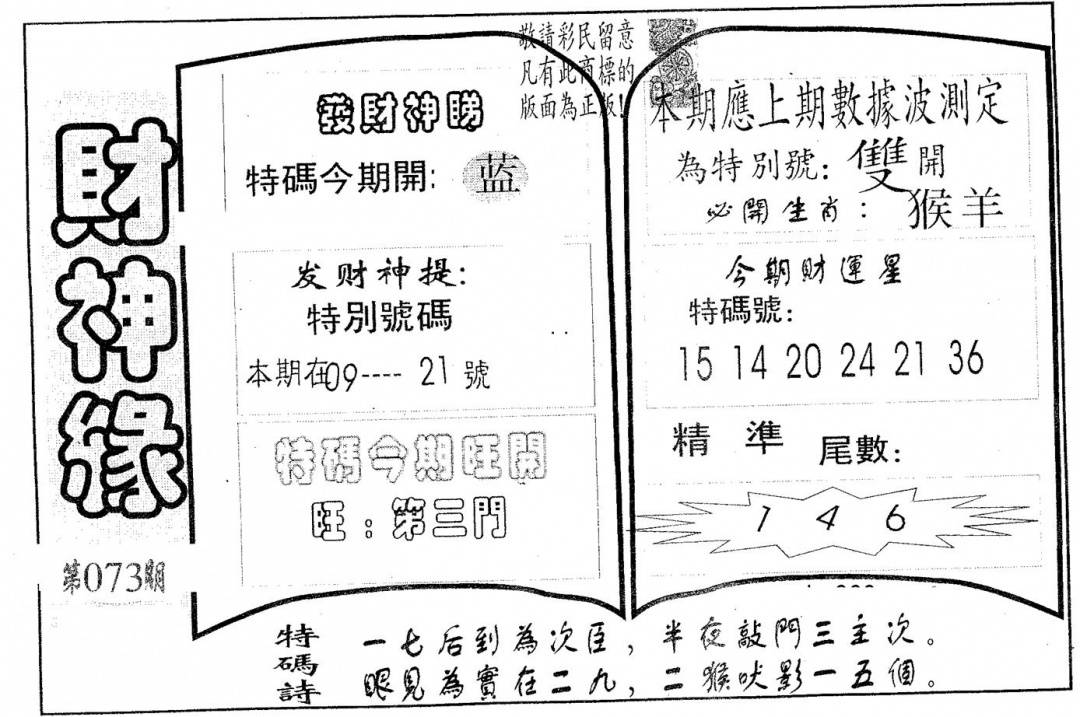 財神緣
第073期
敬請彩民留意
凡有此商標的
版面為正版!
發財神睇
特碼今期開: 蓝
发财神提:
特別號碼
本期在09---- 21 號
特碼今期旺開
旺:第三門
本期應上期數據波測定
為特別號: 雙開
必開生肖: 猴羊
今期財運星
特碼號:
15 14 20 24 21 36
精準 尾數:
1 4 6
特碼詩
一七后到為次臣,半夜敲門三主次。
眼見為實在二九,二猴吠影一五個。